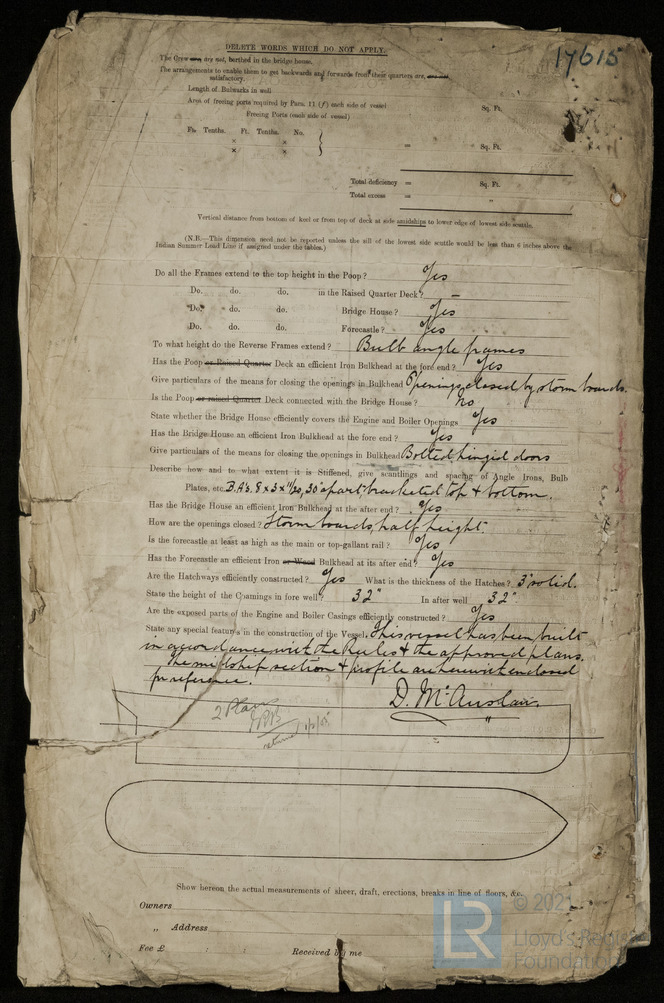 17615
DELETE WORDS WHICH DO NOT APPLY.
The Crew are, are not, berthed in the bridge house.
The arrangements to enable them to get backwards and forwards from their quarters are, are not
satisfactory.
Length of Bulwarks in well
Area of freeing ports required by Para. 11 (f) each side of vessel Sq. Ft.
Freeing Ports (each side of vessel)
Ft. Tenths. Ft. Tenths. No.
×   ×   =   Sq. Ft.
×   ×
Total deficiency = Sq. Ft.
Total excess = "
Vertical distance from bottom of keel or from top of deck at side amidships to lower edge of lowest side scuttle.
(N.B.—This dimension need not be reported unless the sill of the lowest side scuttle would be less than 6 inches above the
Indian Summer Load Line if assigned under the tables.)
Do all the Frames extend to the top height in the Poop? Yes
Do. do. do. in the Raised Quarter Deck? –
Do. do. do. Bridge House? Yes
Do. do. do. Forecastle? Yes
To what height do the Reverse Frames extend? Bulb angle frames
Has the Poop or Raised Quarter Deck an efficient Iron Bulkhead at the fore end? Yes
Give particulars of the means for closing the openings in Bulkhead Openings closed by storm boards.
Is the Poop or raised Quarter Deck connected with the Bridge House? No
State whether the Bridge House efficiently covers the Engine and Boiler Openings Yes
Has the Bridge House an efficient Iron Bulkhead at the fore end? Yes
Give particulars of the means for closing the openings in Bulkhead Bolted, hingid doors
Describe how and to what extent it is Stiffened, give scantlings and spacing of Angle Irons, Bulb
Plates, etc. B.A's. 8 x 3 x 11/20, 30" apart bracketed top & bottom.
Has the Bridge House an efficient Iron Bulkhead at the after end? Yes
How are the openings closed? Storm boards, half height.
Is the forecastle at least as high as the main or top-gallant rail? Yes
Has the Forecastle an efficient Iron or Wood Bulkhead at its after end? Yes
Are the Hatchways efficiently constructed? Yes What is the thickness of the Hatches? 3" solid.
State the height of the Coamings in fore well? 32" In after well 32"
Are the exposed parts of the Engine and Boiler Casings efficiently constructed? Yes
State any special features in the construction of the Vessel. This vessel has been built
in accordance with the Rules & the approved plans.
The midship section & profile are herewith enclosed
for reference.
D. McAuslan.
2 Plans
returned
Show hereon the actual measurements of sheer, draft, erections, breaks in line of floors, &c.
Owners
" Address
Fee £ : : Received by me
LR
© 2021
Lloyd's Register
Foundation